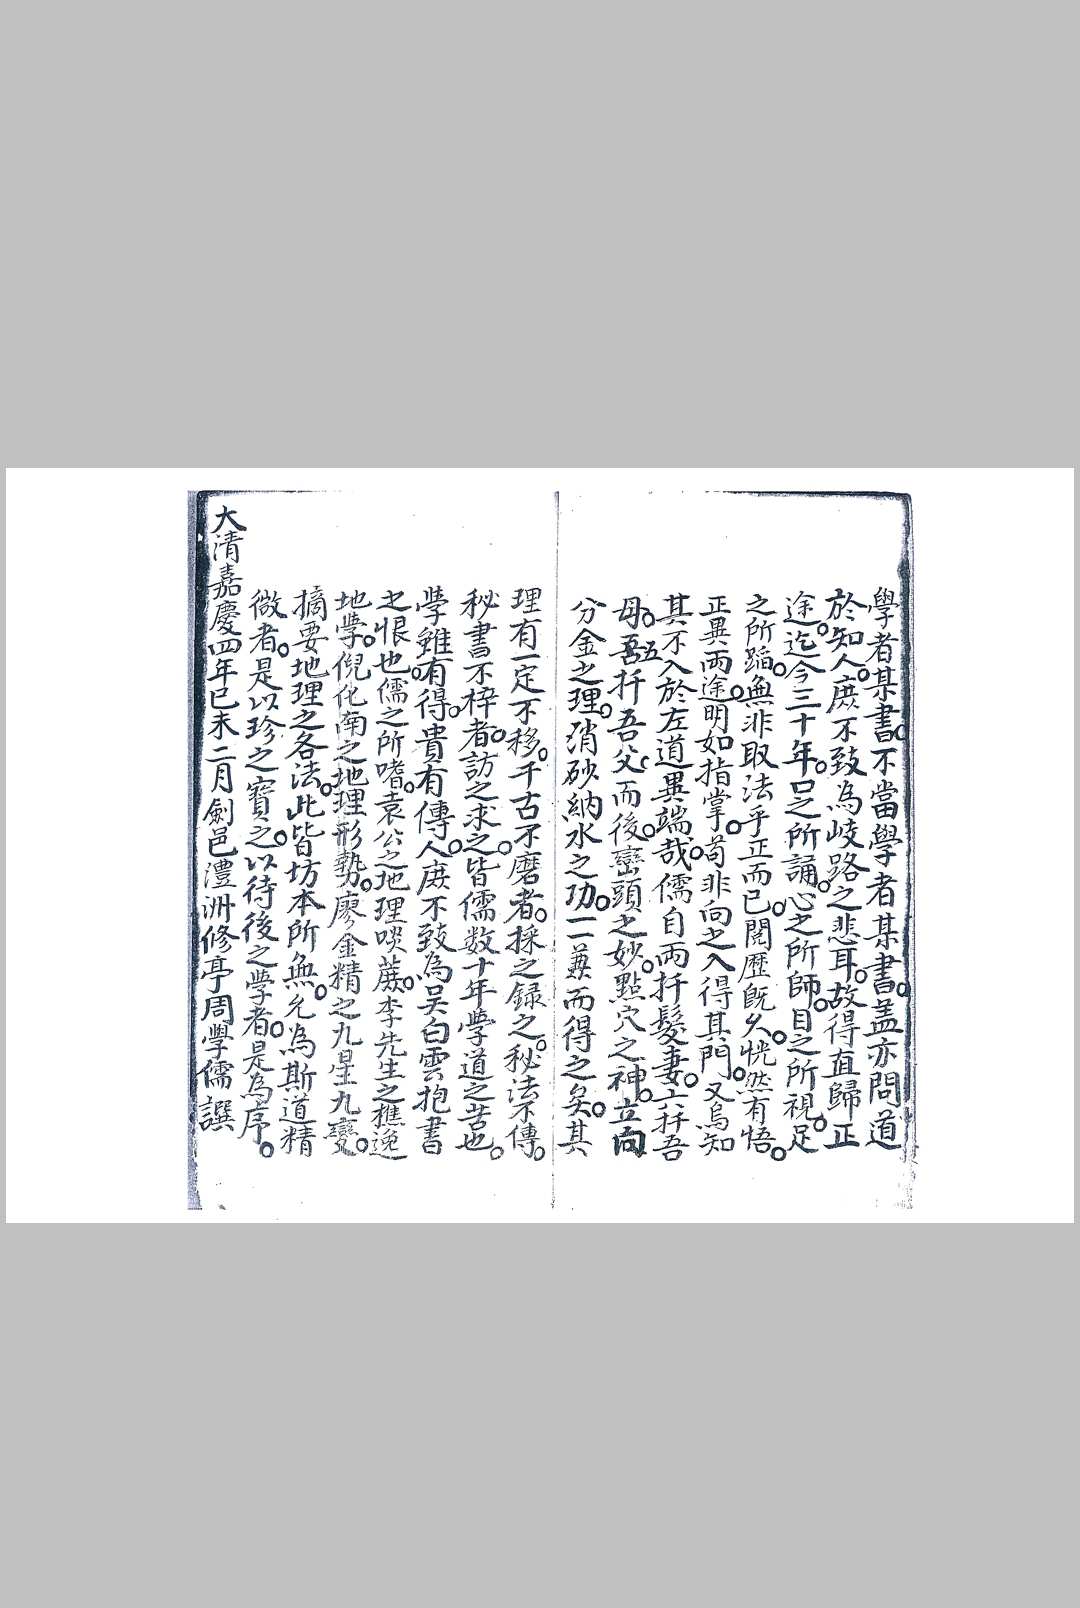 學者某書。不當學者某書。盖亦問道
於知人。庶不致為岐路之悲耳。故得直歸正
途。迄今三十年。口之所誦。心之所師。目之所視。足
之所蹈。無非取法乎正而已。閱歷既久。恍然有悟。
正異兩途。明如指掌。苟非向之入得其門。又烏知
其不入於左道異端哉。儒自兩扦髮妻。六扦吾
母。五扦吾父。而後。巒頭之妙。點穴之神。立向
分金之理。消砂納水之功。一一兼而得之矣。其
理有一定不移。千古不磨者。採之録之。秘法不傳。
秘書不梓者。訪之求之。皆儒数十年學道之苦也。
學雖有得。貴有傳人。庶不致為吴白雲抱書
之恨也。儒之所嗜。袁公之地理啖蔗。李先生之樵逸
地學。倪化南之地理形勢。廖金精之九星九變。
摘要地理之各法。此皆坊本所無。允為斯道精
微者。是以珍之寶之。以待後之學者。是為序。
大清嘉慶四年巳未二月劍邑澧洲修亭周學儒譔